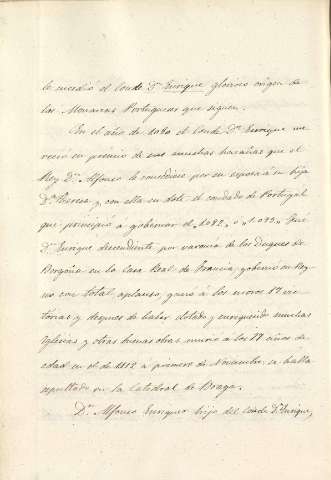 le sucedió el Conde Dn. Enrique glorioso origen de
los Monarcas Portugueses que siguen.
En el año de 1080 el Conde Dn. Enrique me
reció en premio de sus muchas hazañas que el
Rey Dn. Alfonso le concediese por su esposa á su hija
Da. Teresa y, con ella en dote el condado de Portugal
que principió a gobernar el 1082, ó "1.092" Fué
Dn. Enrique descendiente por varonia de los Duques de
Borgoña en la Casa Real de Francia, gobernó su Rey-
no con total aplauso, ganó á los moros 17 vic-
torias y despues de haber dotado y enriquecido muchas
Iglesias y otras buenas obras murio a los 77 años de
edad en el de 1112 a primero de Noviembre, se halla
sepultado en la Catedral de Braga.
Dn. Alfonso Enriquez hijo del Conde Dn. Enrique,